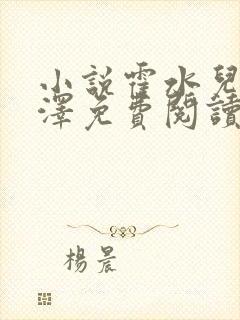 小說霍水兒
澤免費閱讀
楊晨